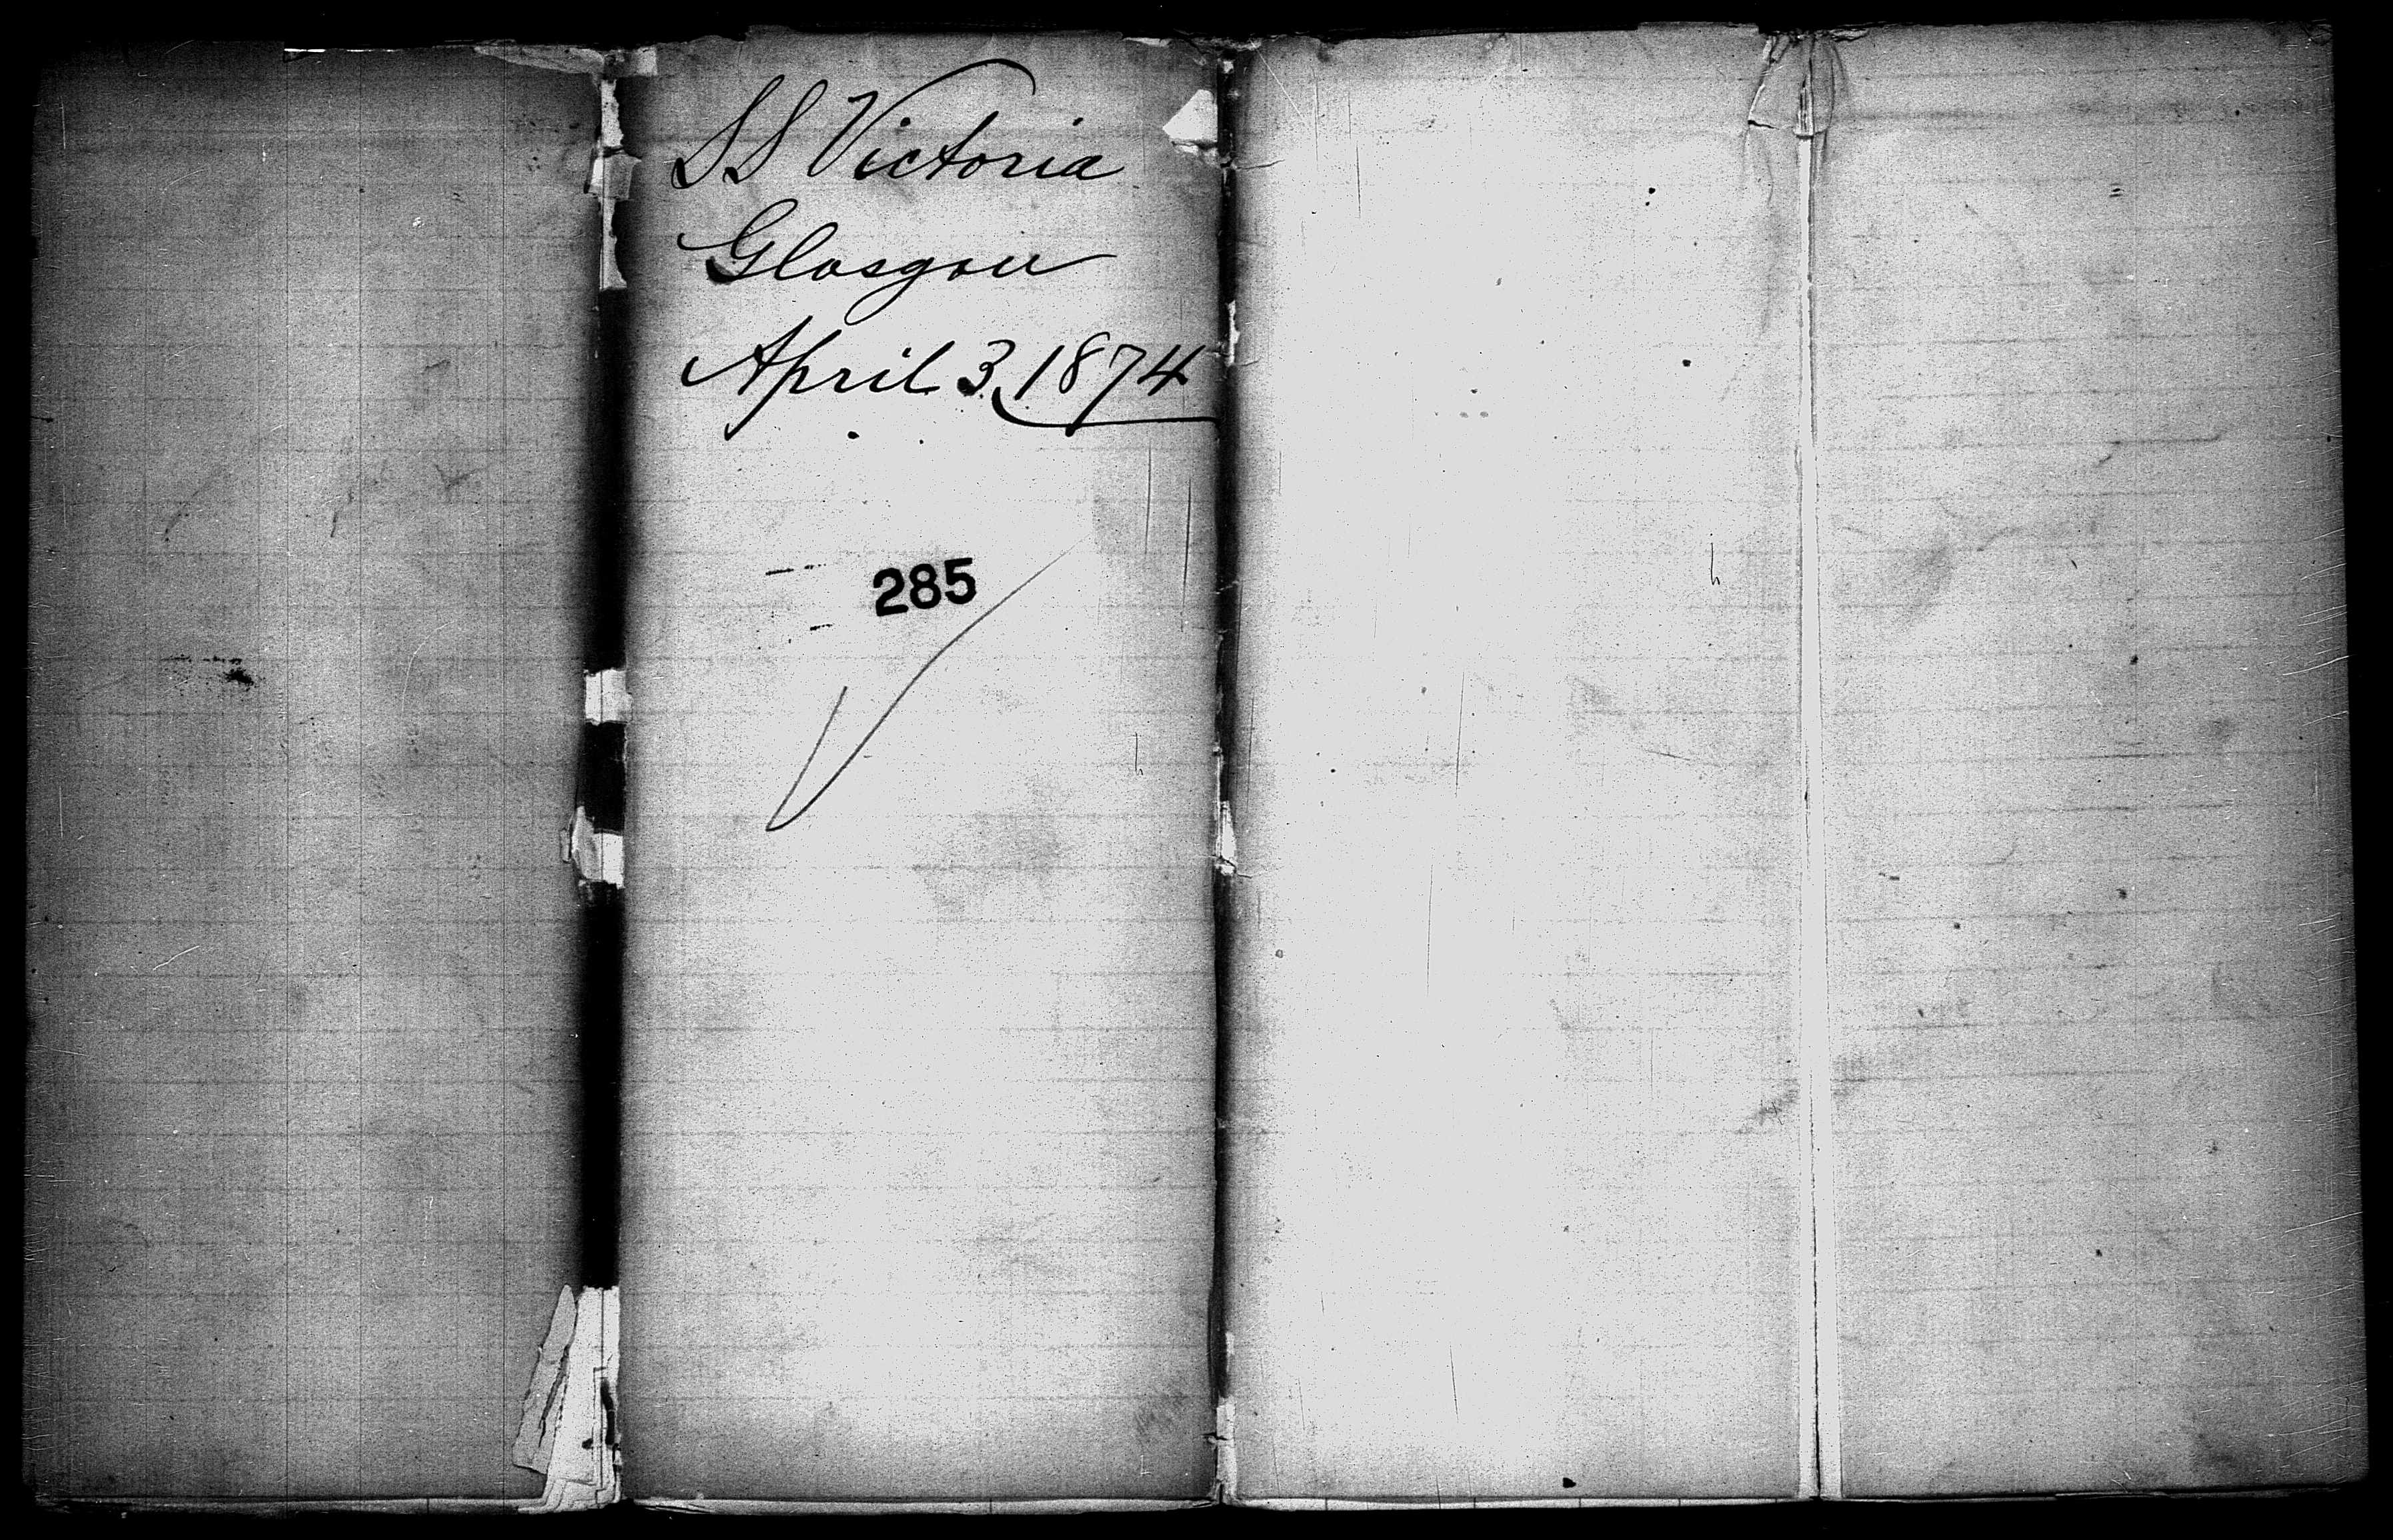 SS Victoria
Glasgow
April 3, 1874
285